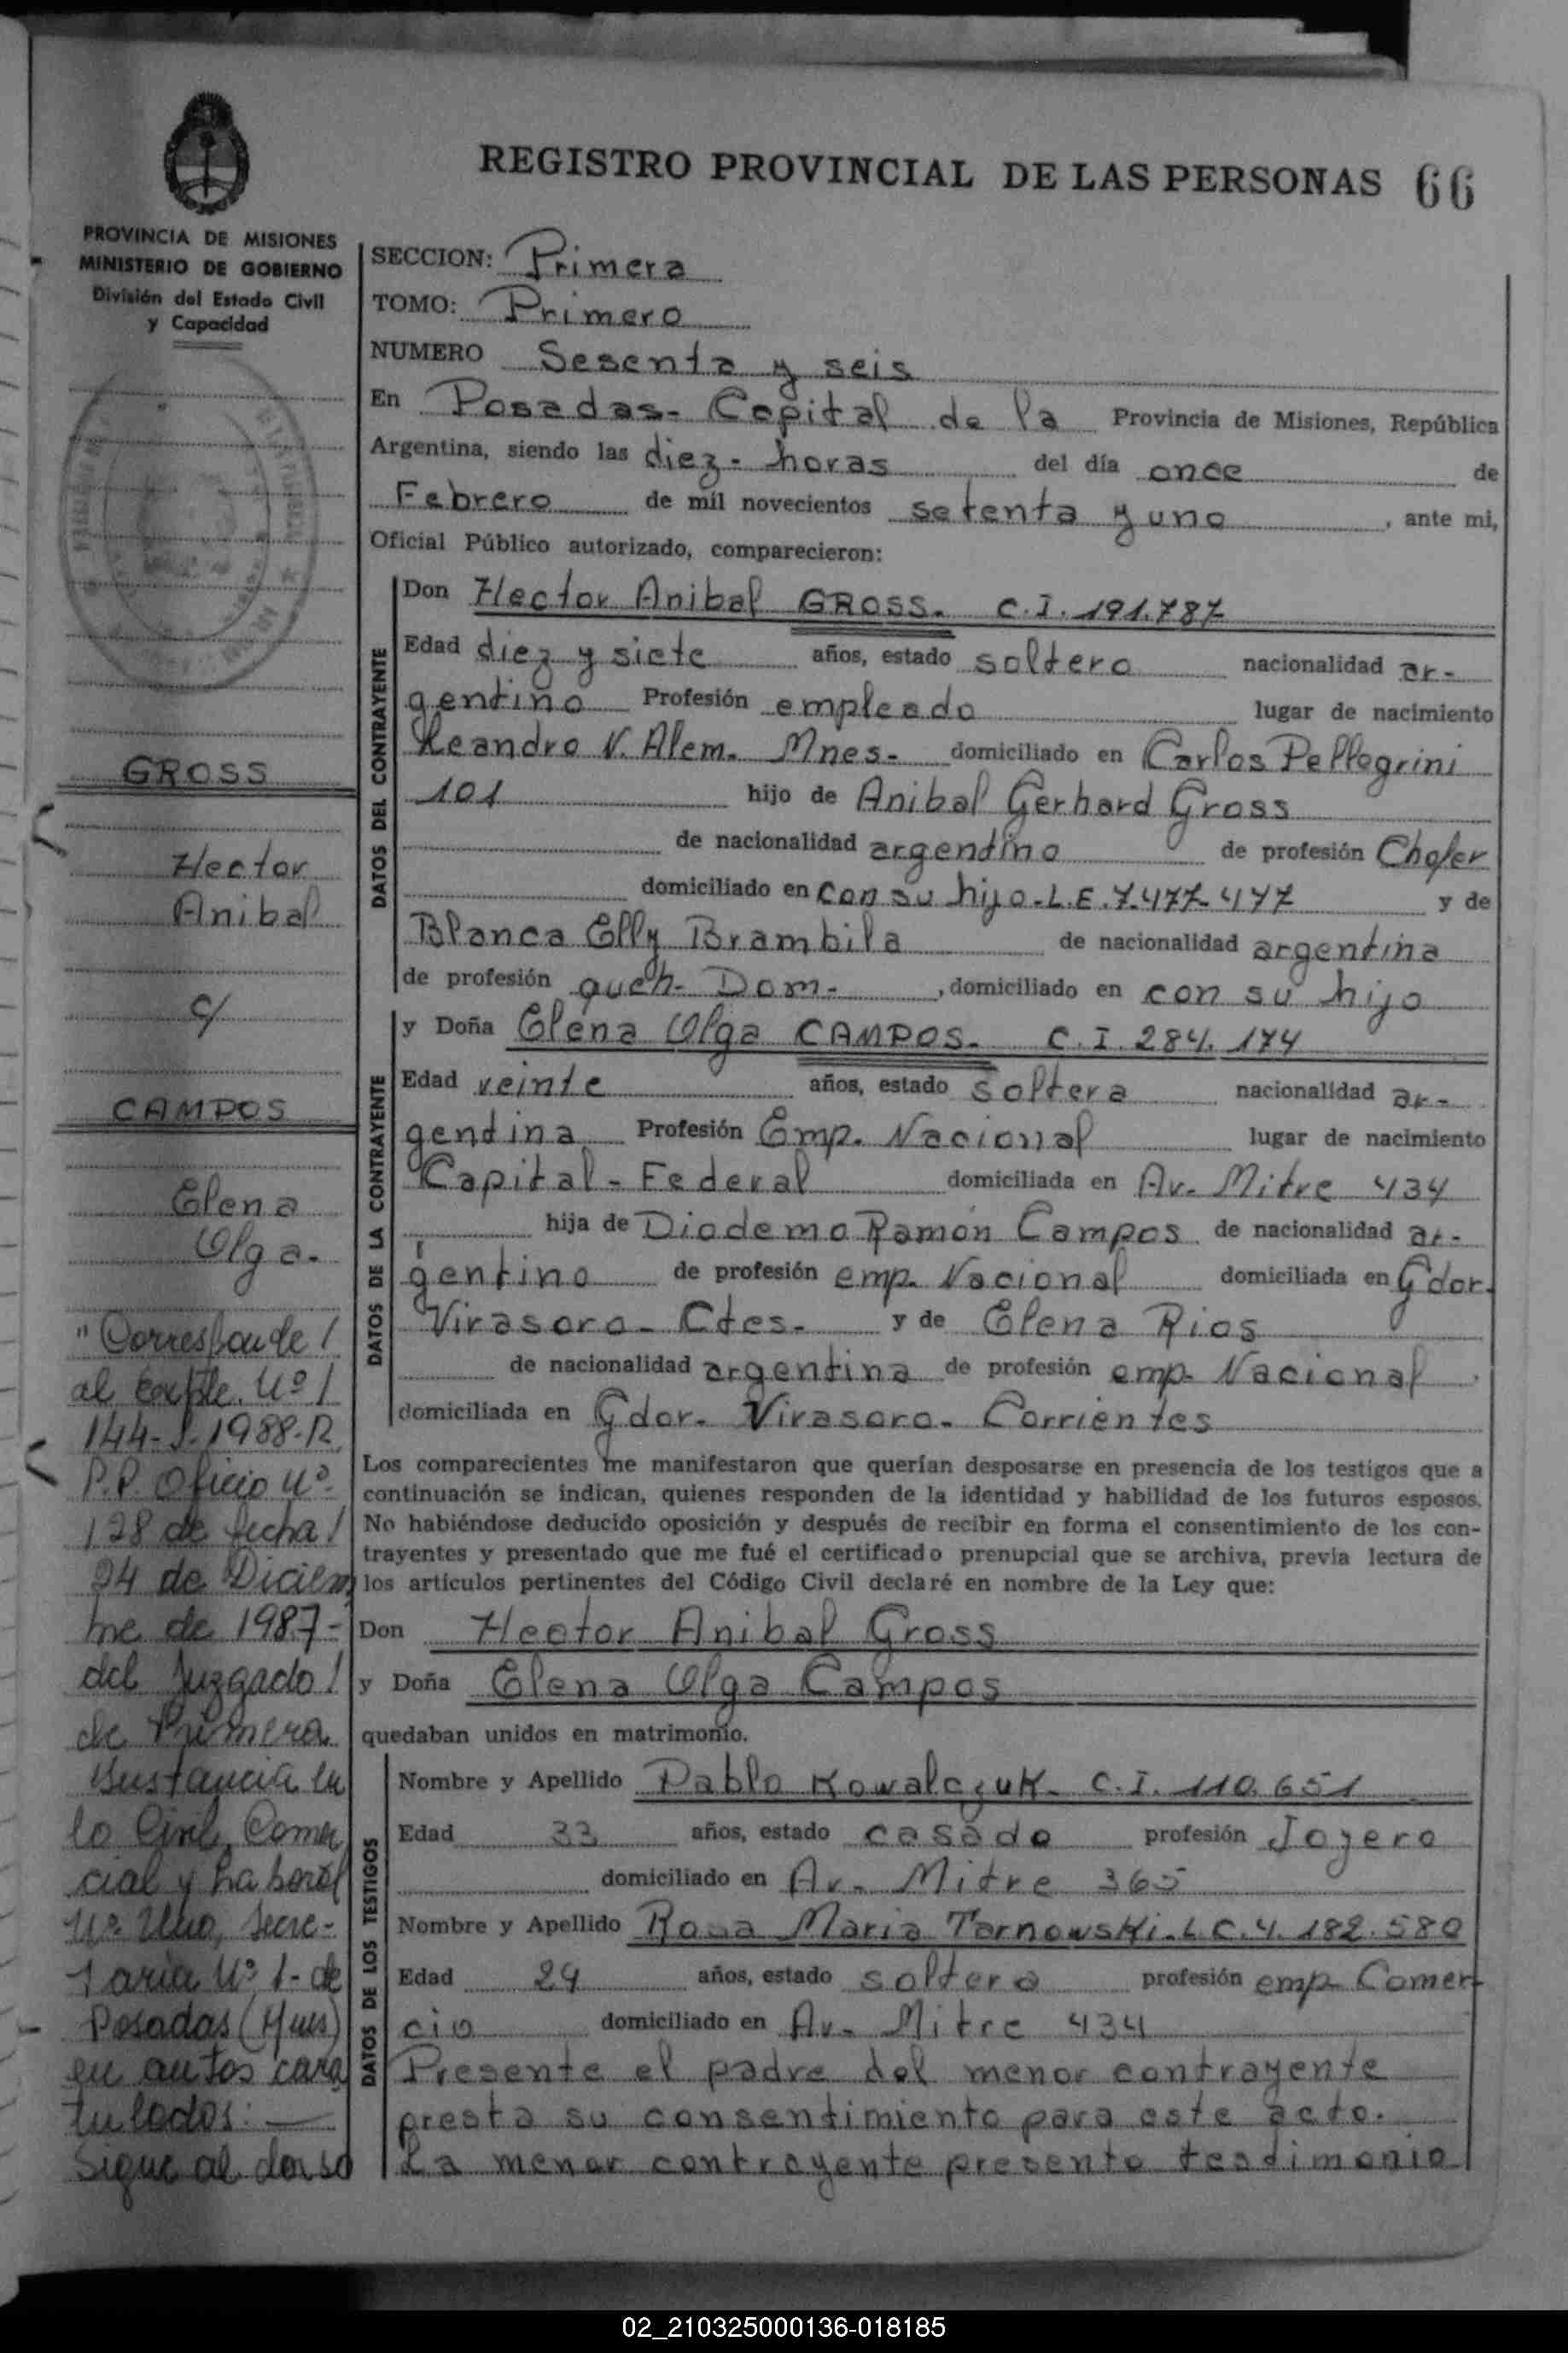 REGISTRO PROVINCIAL DE LAS PERSONAS 66
PROVINCIA DE MISIONES
MINISTERIO DE GOBIERNO
División del Estado Civil
y Capacidad
GROSS
Hector
Anibal
c/
CAMPOS
Elena
Olga.
"Corresponde/
al Expte. Nº/
144- 1988-R
P.P. Oficio Nº
128 de fecha/
24 de Diciem
bre de 1987-
del Juzgado/
de Primera
Instancia en
lo Civil, Comer
cial y Laboral
Nº Uno, Secre-
taria Nº 1- de
Posadas (Mnes)
en autos cara
tulados:
Sigue al dorso
SECCION: Primera
TOMO: Primero
NUMERO Sesenta y seis
En Posadas- Capital de la Provincia de Misiones, República
Argentina, siendo las diez- horas del día once de
Febrero de mil novecientos setenta y uno, ante mi,
Oficial Público autorizado, comparecieron:
DATOS DEL CONTRAYENTE
Don Hector Anibal GROSS. C.I. 191.787
Edad diez y siete años, estado soltero nacionalidad ar-
gentino Profesión empleado lugar de nacimiento
Leandro N. Alem. Mnes- domiciliado en Carlos Pellegrini
101 hijo de Anibal Gerhard Gross
de nacionalidad argentino de profesión Chofer
domiciliado en con su hijo-L.E. 7.477.477 y de
Blanca Elly Brambila de nacionalidad argentina
de profesión queh- Dom-, domiciliado en con su hijo
DATOS DE LA CONTRAYENTE
y Doña Elena Olga CAMPOS- C.I. 284.174
Edad veinte años, estado soltera nacionalidad ar-
gentina Profesión Emp. Nacional lugar de nacimiento
Capital-Federal domiciliada en Av- Mitre 434
hija de Diodemo Ramón Campos de nacionalidad ar-
gentino de profesión emp. Nacional domiciliada en Gdor.
Virasoro- Ctes- y de Elena Rios
de nacionalidad argentina de profesión emp- Nacional
domiciliada en Gdor- Virasoro- Corrientes
Los comparecientes me manifestaron que querían desposarse en presencia de los testigos que a
continuación se indican, quienes responden de la identidad y habilidad de los futuros esposos.
No habiéndose deducido oposición y después de recibir en forma el consentimiento de los con-
trayentes y presentado que me fué el certificado prenupcial que se archiva, previa lectura de
los artículos pertinentes del Código Civil declaré en nombre de la Ley que:
Don Hector Anibal Gross
y Doña Elena Olga Campos
quedaban unidos en matrimonio.
DATOS DE LOS TESTIGOS
Nombre y Apellido Pablo Kowalczuk- C.I. 110.651
Edad 33 años, estado casado profesión Joyero
domiciliado en Av- Mitre 365
Nombre y Apellido Rosa Maria Tarnowski-L.C.4.182.580
Edad 29 años, estado soltera profesión emp- Comer-
cio domiciliado en Av- Mitre 434
Presente el padre del menor contrayente
presta su consentimiento para este acto.
La menor contrayente presento testimonio
02_210325000136-018185